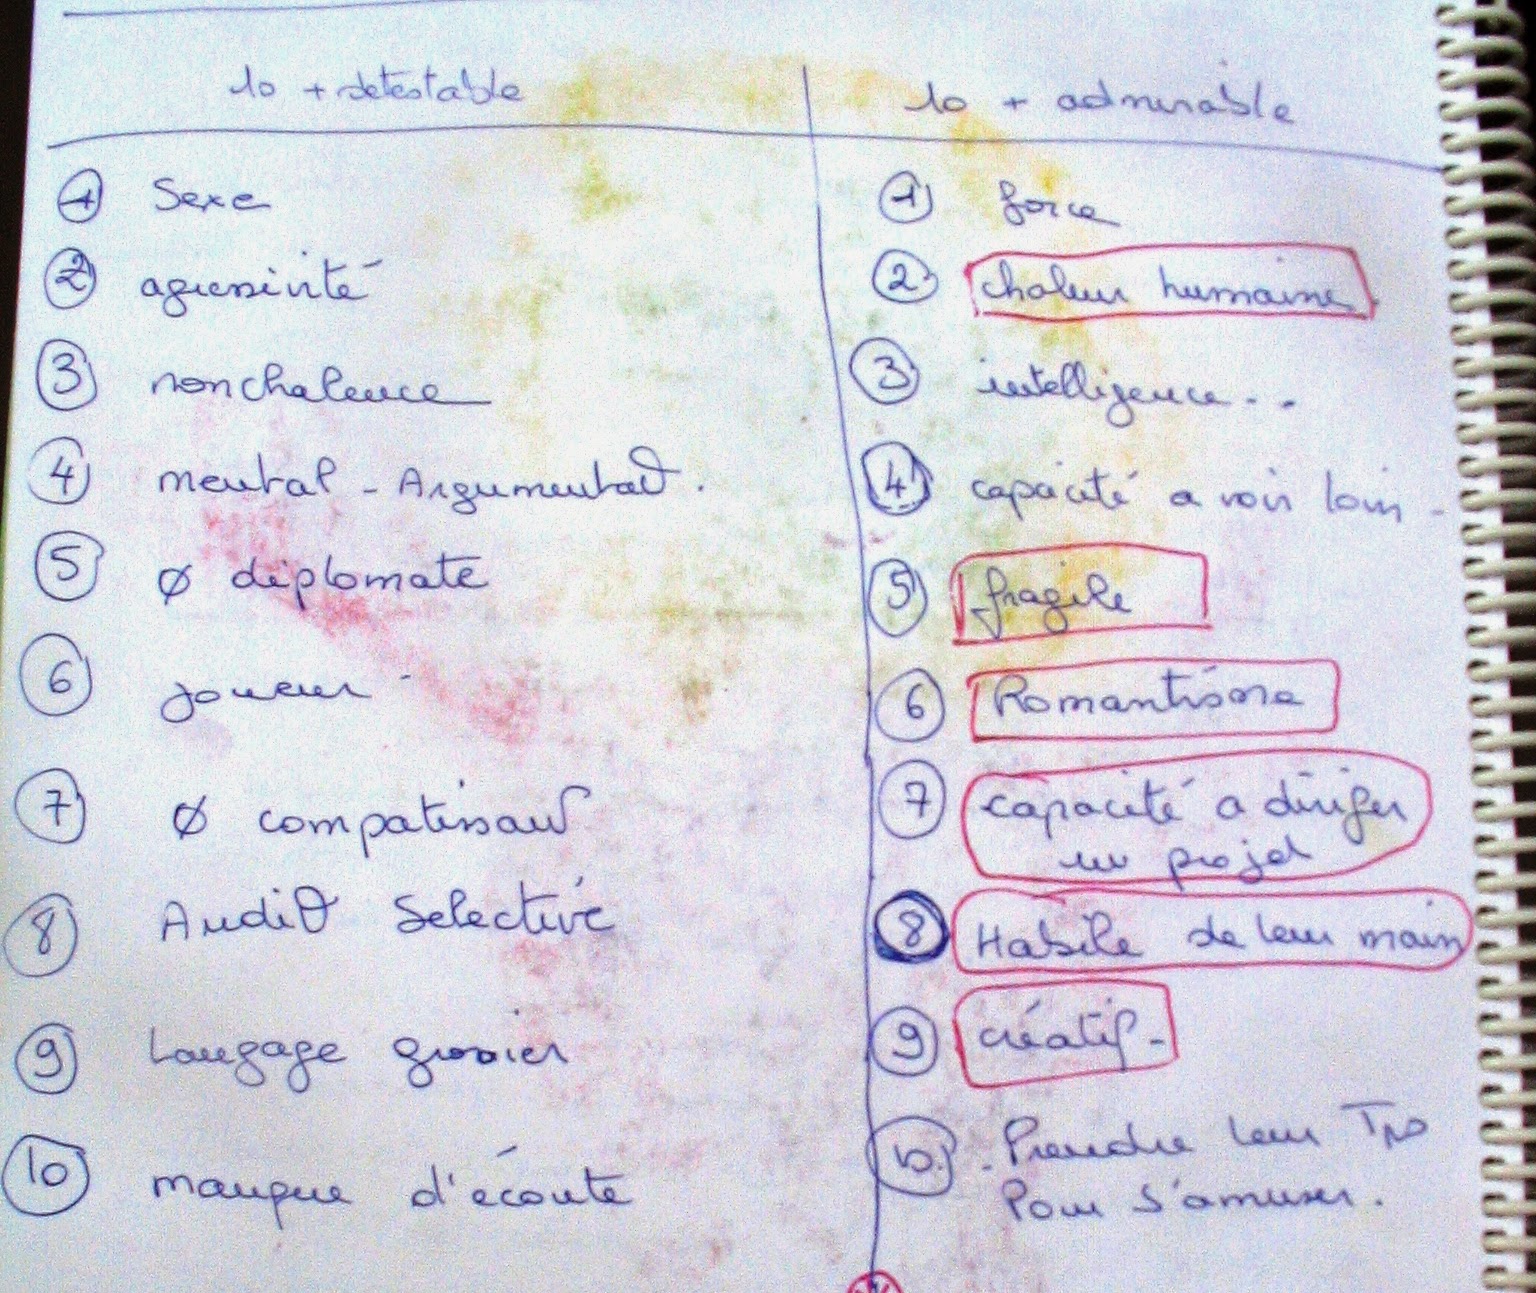 10 + detestable
① Sexe
② agressivité
③ nonchalence
④ mental - Argumentat°.
⑤ ø diplomate
⑥ joueur
⑦ ø compatissant
⑧ Audit° Selective
⑨ Langage grossier
⑩ manque d'écoute
10 + admirable
① force
② chaleur humaine
③ intelligence...
④ capacité a voir loin -
⑤ fragile
⑥ Romantisme
⑦ capacité a diriger
un projet
⑧ Habile de leur main
⑨ créatif -
⑩ . Prendre leur Tps
Pour S'amuser.